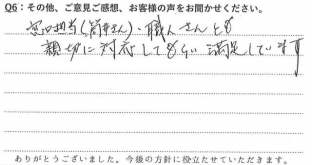 Q6：その他、ご意見ご感想、お客様の声をお聞かせください。
窓口担当(筒井さん)・職人さんとも
親切に対応してもらい満足しています
ありがとうございました。今後の方針に役立たせていただきます。